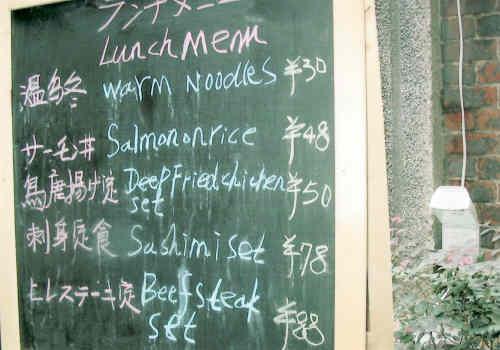 ランチメニュー
Lunch Menu
温烏冬 Warm Noodles ¥30
サーモン丼 Salmon on rice ¥48
鳥唐揚げ定 Deep Fried chicken set ¥50
刺身定食 Sushimi set ¥78
ヒレステーキ定 Beef steak set ¥88